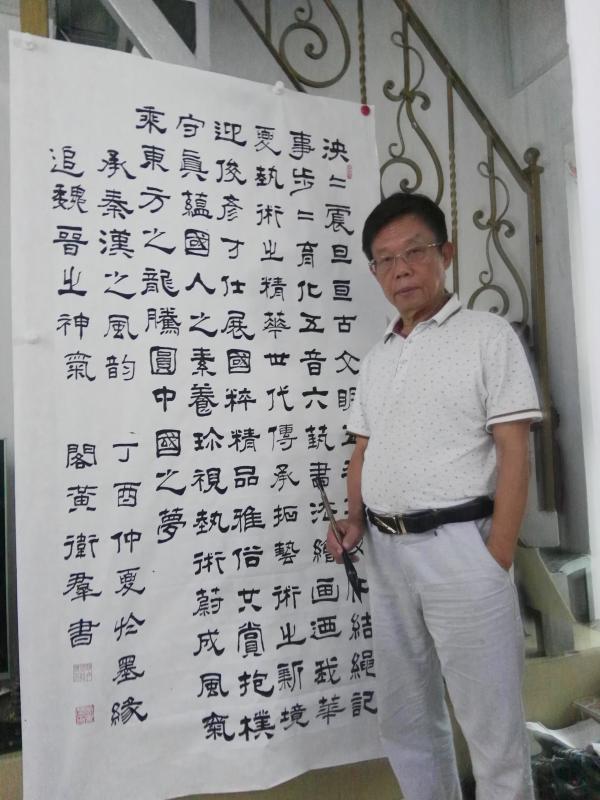 泱〻震旦亘古文明 結繩記
事步〻育化五音六埶書法繪画迺我華
夏埶術之精華世代傳承拓藝術之新境
迎俊彥才仕展國粹精品雅俗共賞抱樸
守真蘊國人之素養珍視埶術蔚成風氣
乘東方之龍騰圓中國之夢
承秦漢之風韵 丁酉仲夏於墨緣
追魏晉之神氣 閣黃衛羣書